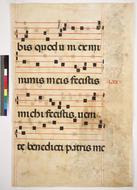 bis quod uni ex mi
nimis meis fecistis
michi fecistis. ueni
te benedicti patris me